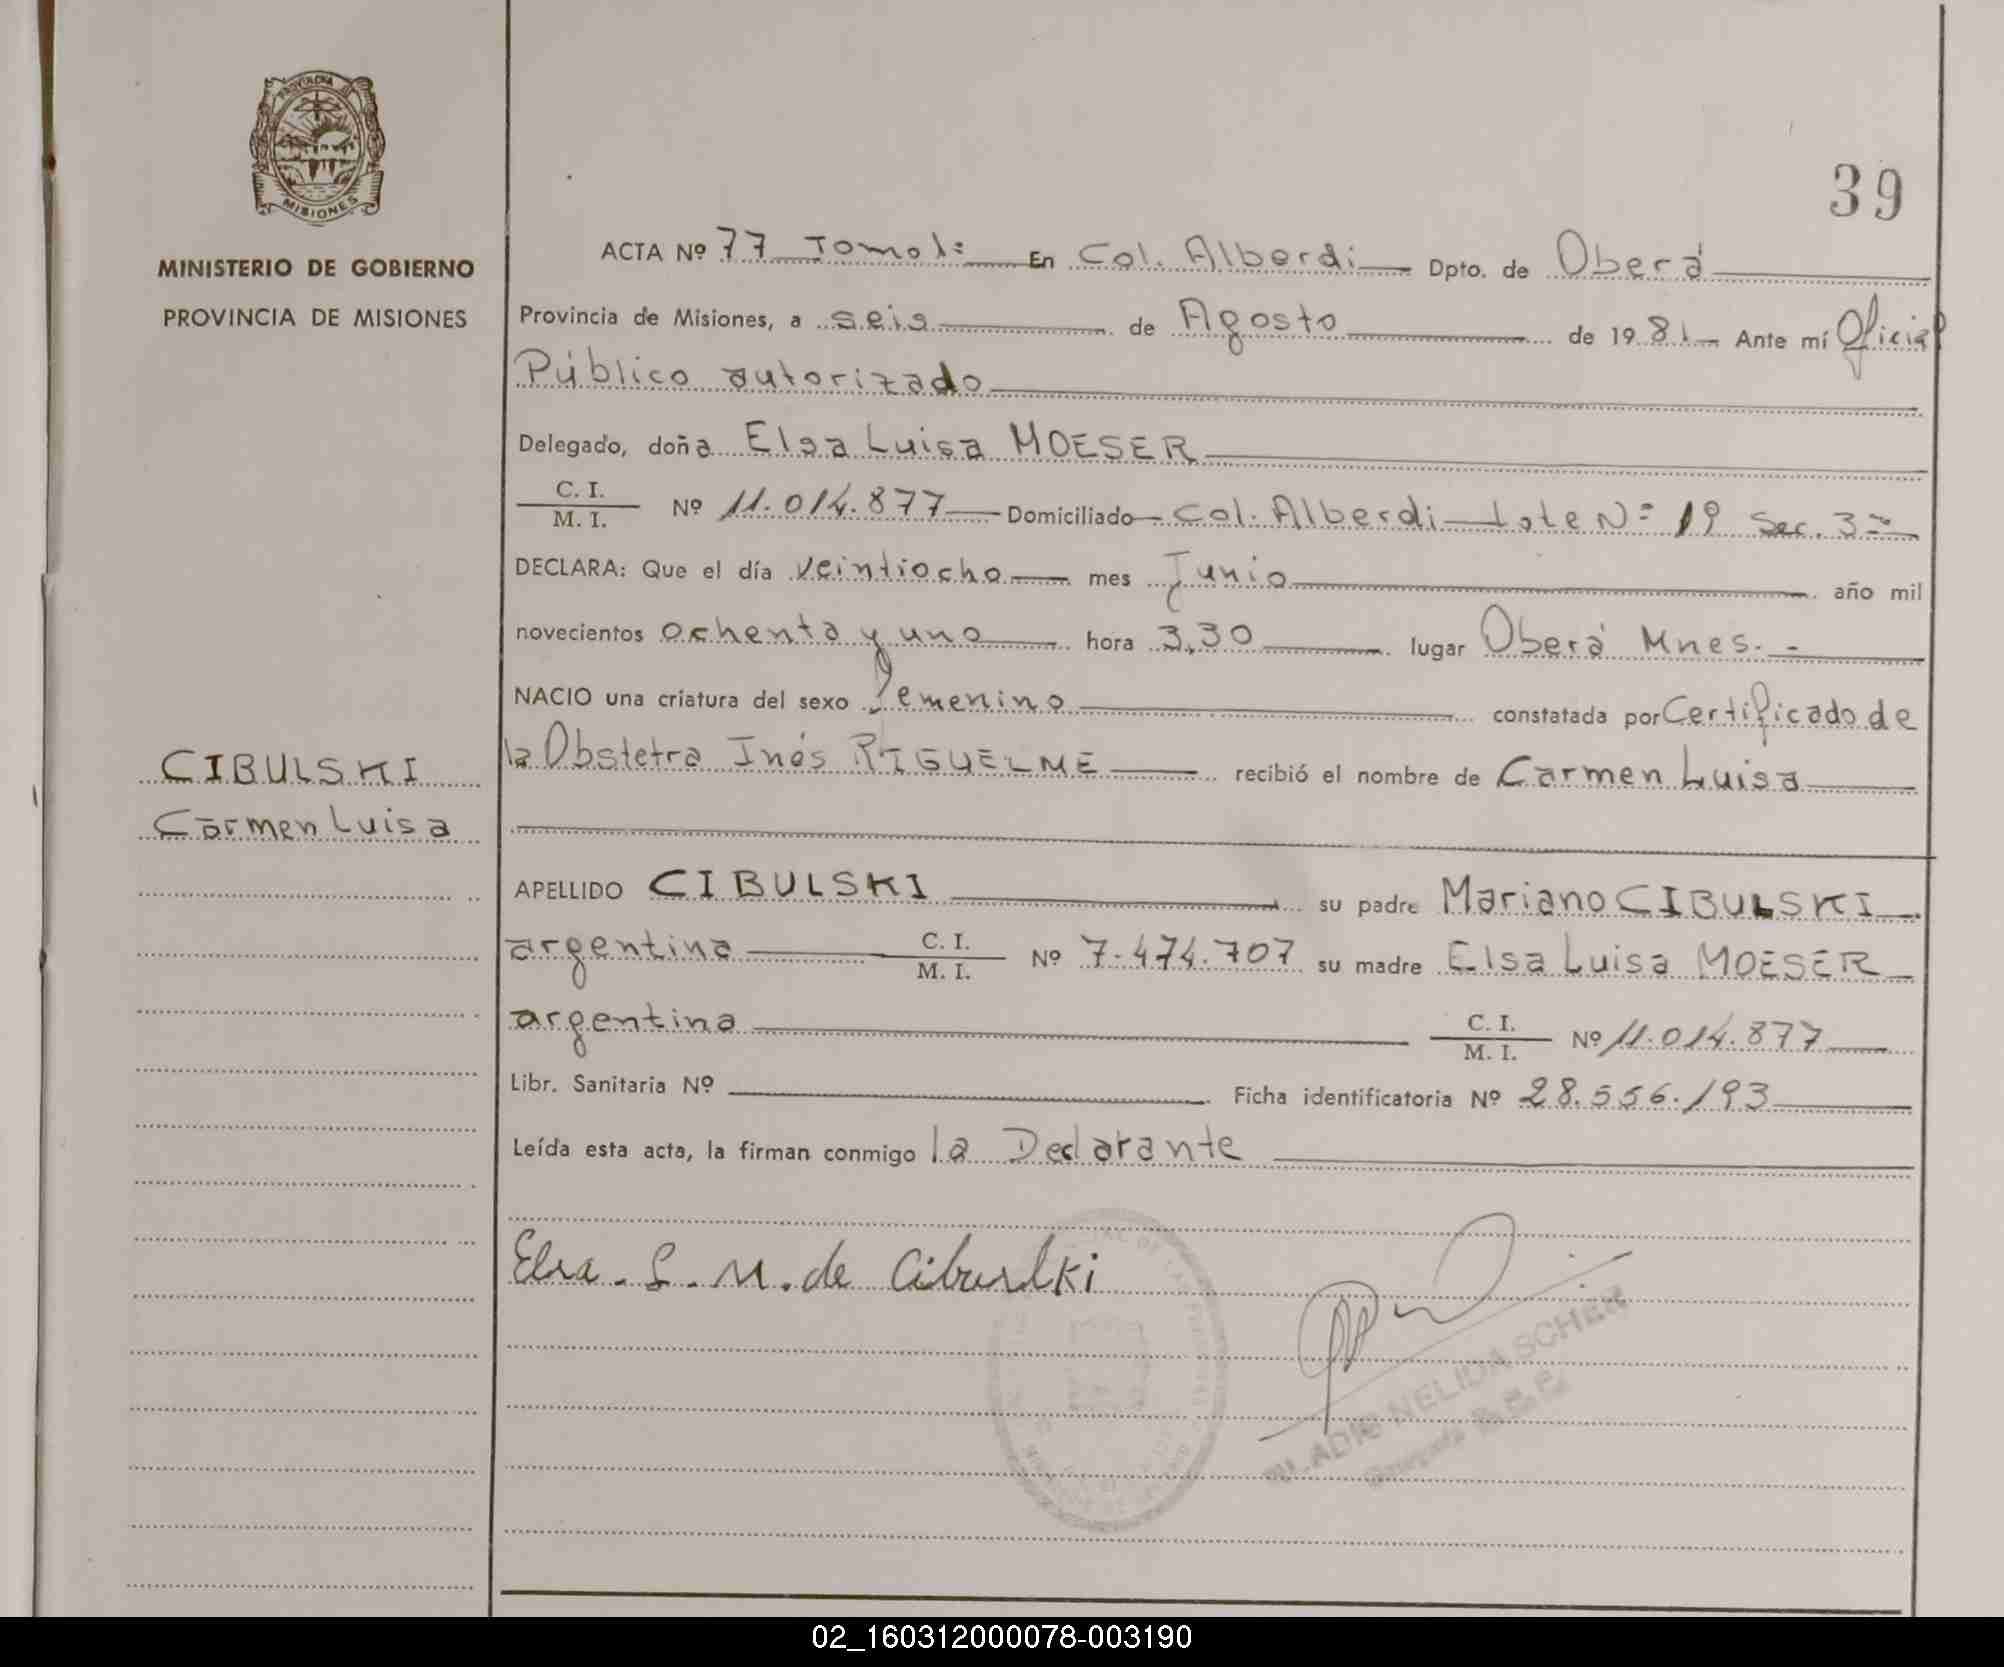 PROVINCIA
MISIONES
MINISTERIO DE GOBIERNO
PROVINCIA DE MISIONES
39
ACTA Nº 77 Tomo 1º En Col. Alberdi Dpto. de Oberá
Provincia de Misiones, a seis de Agosto de 1981 Ante mí Oficial
Público autorizado
Delegado, doña Elsa Luisa MOESER
C. I.
M. I. Nº 11.014.877 Domiciliado Col. Alberdi Lote Nº 19 Sec. 3ª
DECLARA: Que el día veintiocho mes Junio año mil
novecientos ochenta y uno hora 3,30 lugar Oberá Mnes. -
NACIO una criatura del sexo femenino constatada por Certificado de
la Obstetra Inés RIGUELME recibió el nombre de Carmen Luisa
CIBULSKI
Carmen Luisa
APELLIDO CIBULSKI su padre Mariano CIBULSKI
argentina C. I.
M. I. Nº 7.474.707 su madre Elsa Luisa MOESER
argentina C. I.
M. I. Nº 11.014.877
Libr. Sanitaria Nº Ficha identificatoria Nº 28.556.193
Leída esta acta, la firman conmigo la Declarante
Elsa. L. M. de Cibulski
NELIDA SCHER
02_160312000078-003190